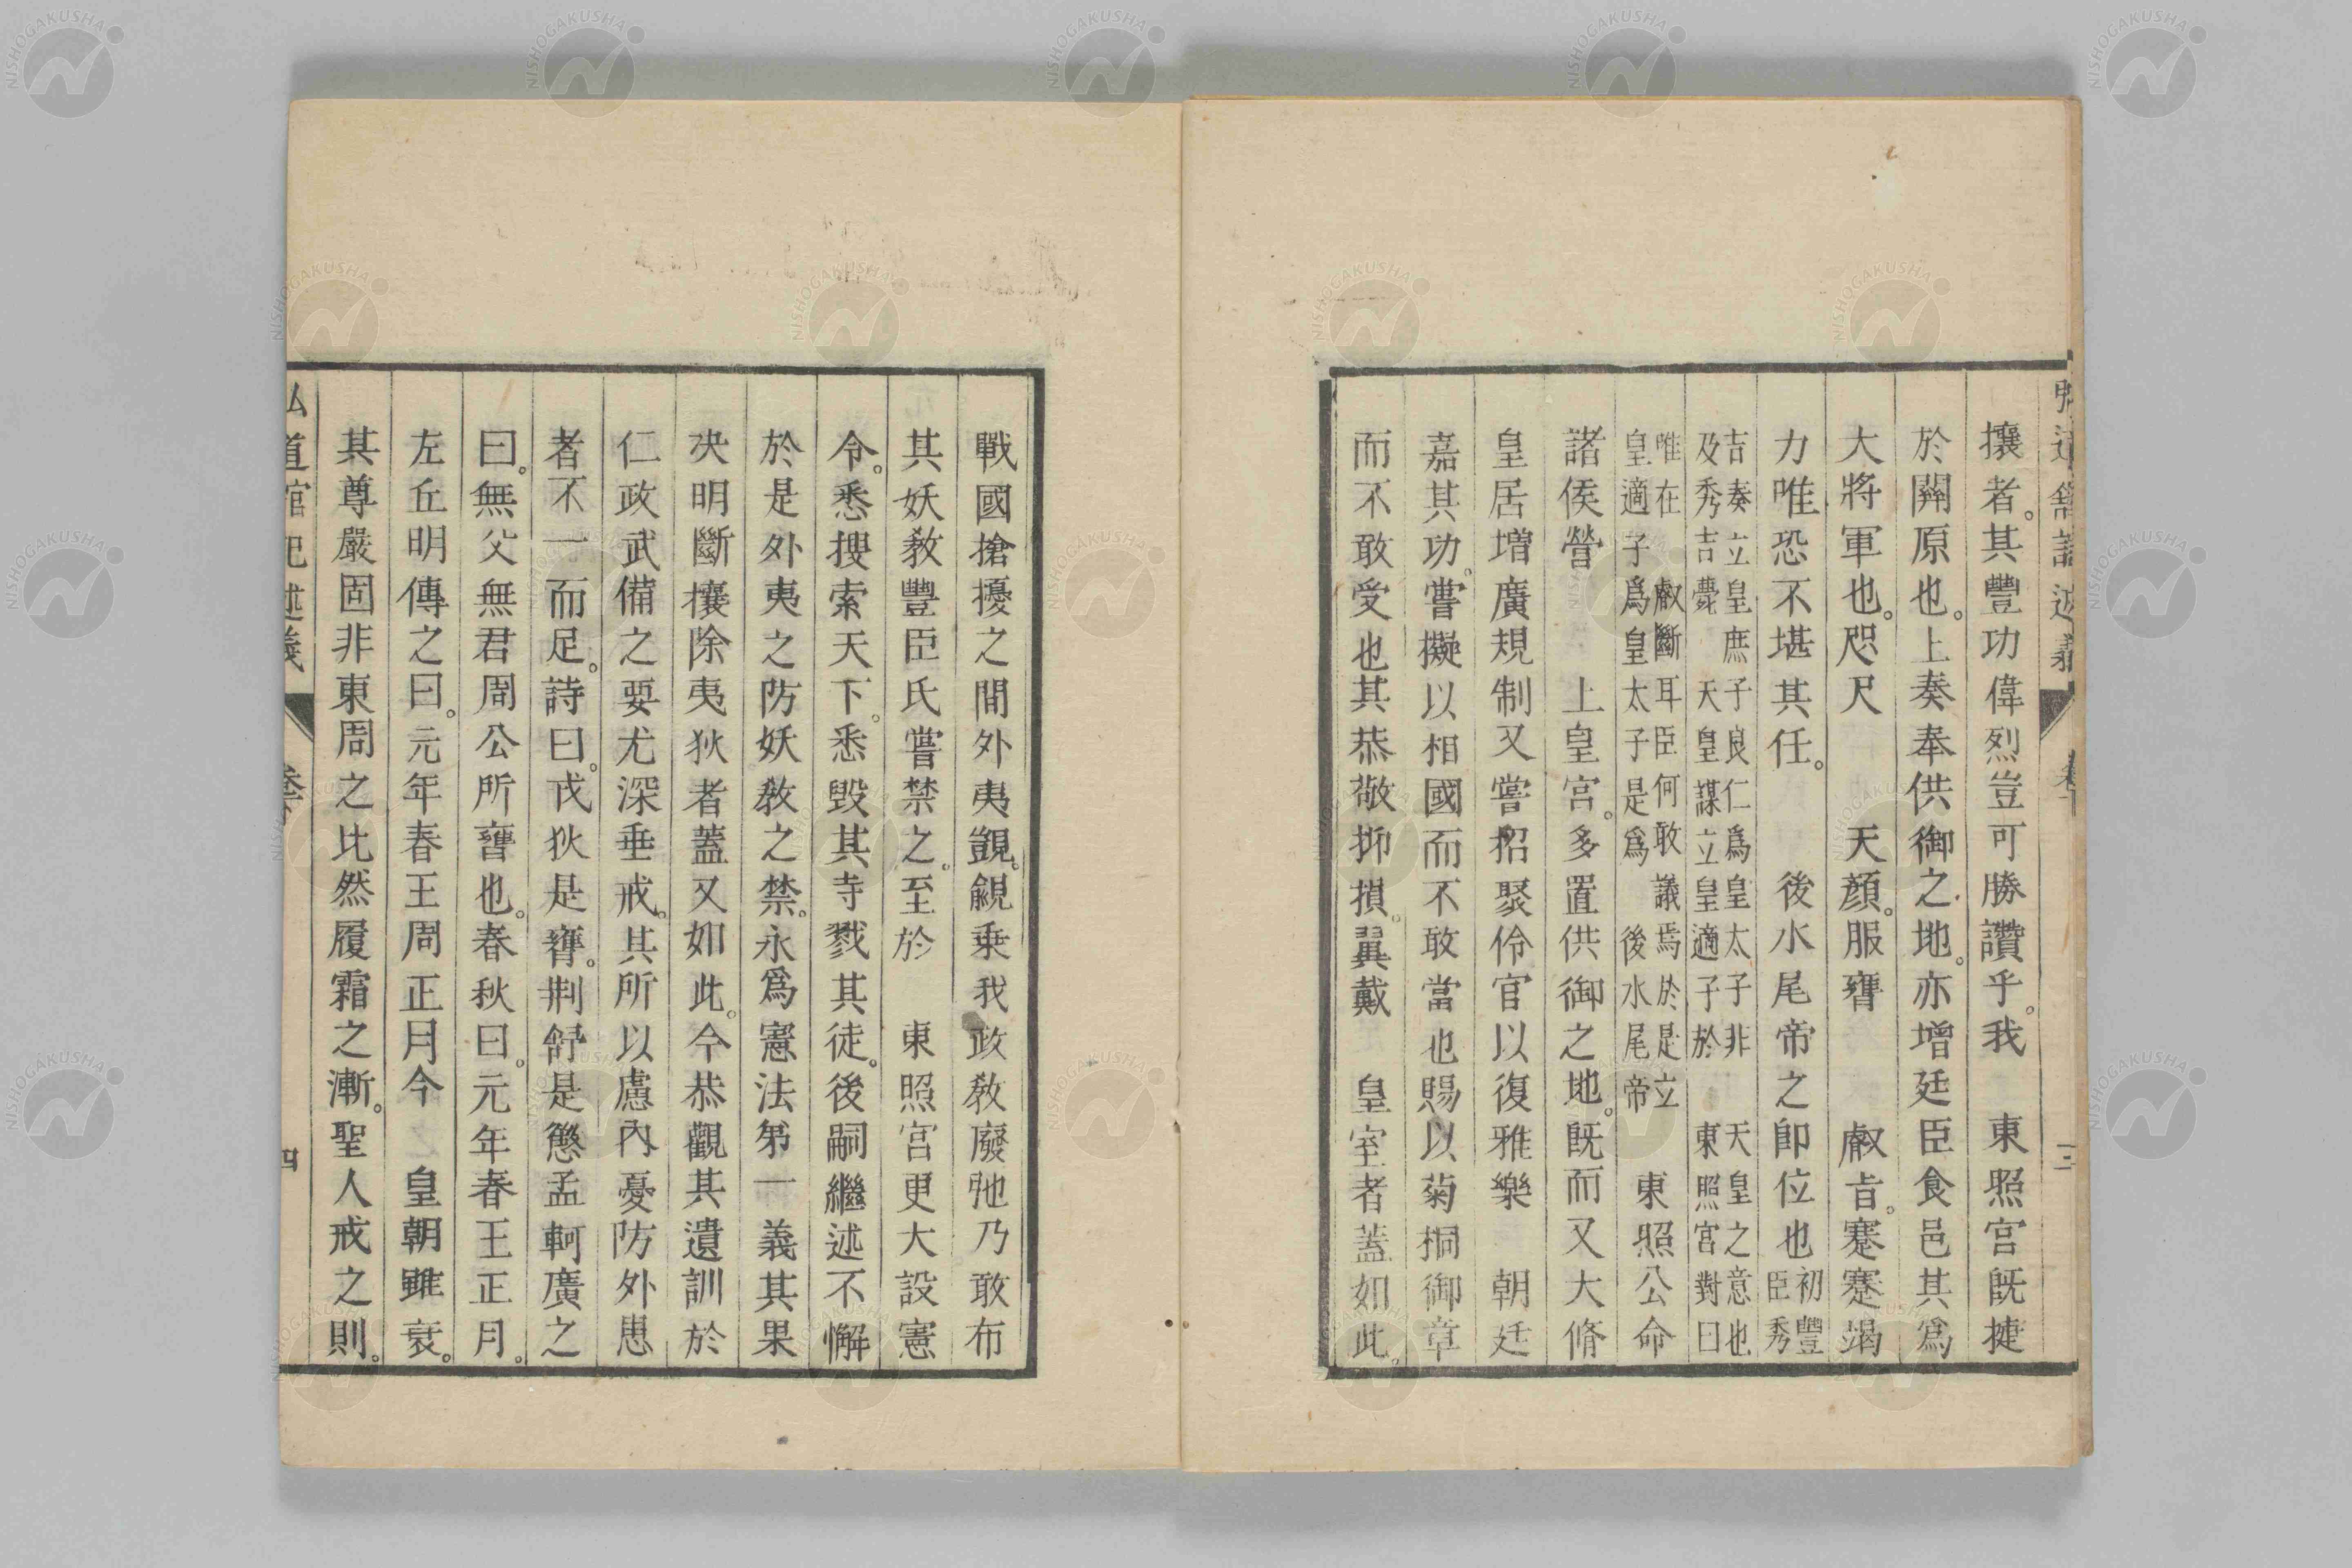 弘道館記述義
卷下
三
攘者。其豐功偉烈豈可勝讚乎。我 東照宮既捷
於關原也。上奏奉供御之地。亦增廷臣食邑其爲
大將軍也。咫尺 天顏。服膺 叡旨。蹇蹇竭
力唯恐不堪其任。 後水尾帝之卽位也初豐
臣秀
吉奏立皇庶子良仁爲皇太子非 天皇之意也
及秀吉薨 天皇謀立皇適子於 東照宮對曰
唯在 叡斷耳臣何敢議焉於是立
皇適子爲皇太子是爲 後水尾帝 東照公命
諸侯營 上皇宮。多置供御之地。既而又大脩
皇居增廣規制又嘗招聚伶官以復雅樂 朝廷
嘉其功。嘗擬以相國而不敢當也賜以菊桐御章
而不敢受也其恭敬抑損。翼戴 皇室者蓋如此。
戰國搶擾之間外夷覬。覦乘我政敎廢弛乃敢布
其妖敎豐臣氏嘗禁之。至於 東照宮更大設憲
令。悉搜索天下。悉毀其寺戮其徒。後嗣繼述不懈
於是外夷之防妖敎之禁。永爲憲法第一義其果
决明斷攘除夷狄者蓋又如此。今恭觀其遺訓於
仁政武備之要尤深垂戒。其所以慮內憂防外患
者不一而足。詩曰。戎狄是膺。荆舒是懲孟軻廣之
曰。無父無君周公所膺也。春秋曰。元年春王正月。
左丘明傳之曰。元年春王周正月今 皇朝雖衰。
其尊嚴固非東周之比然履霜之漸。聖人戒之則。
弘道館記述義
卷下
四
NISHOGAKUSHA